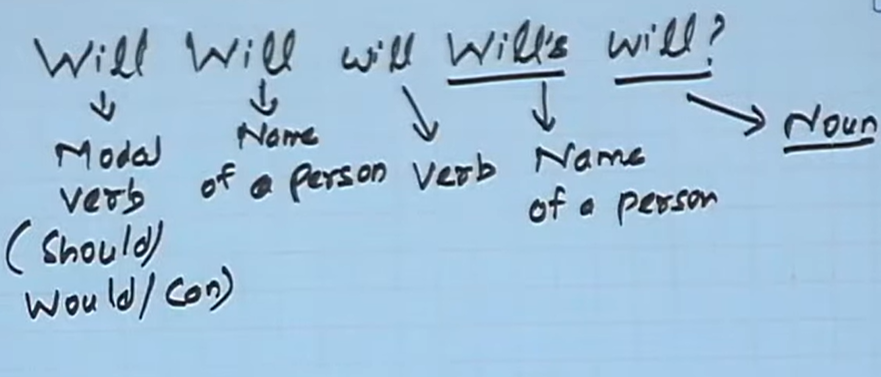 Will Will will Will's will?
Modal
verb
(Should/
Would/Can)
Name
of a person
Verb
Name
of a person
Noun